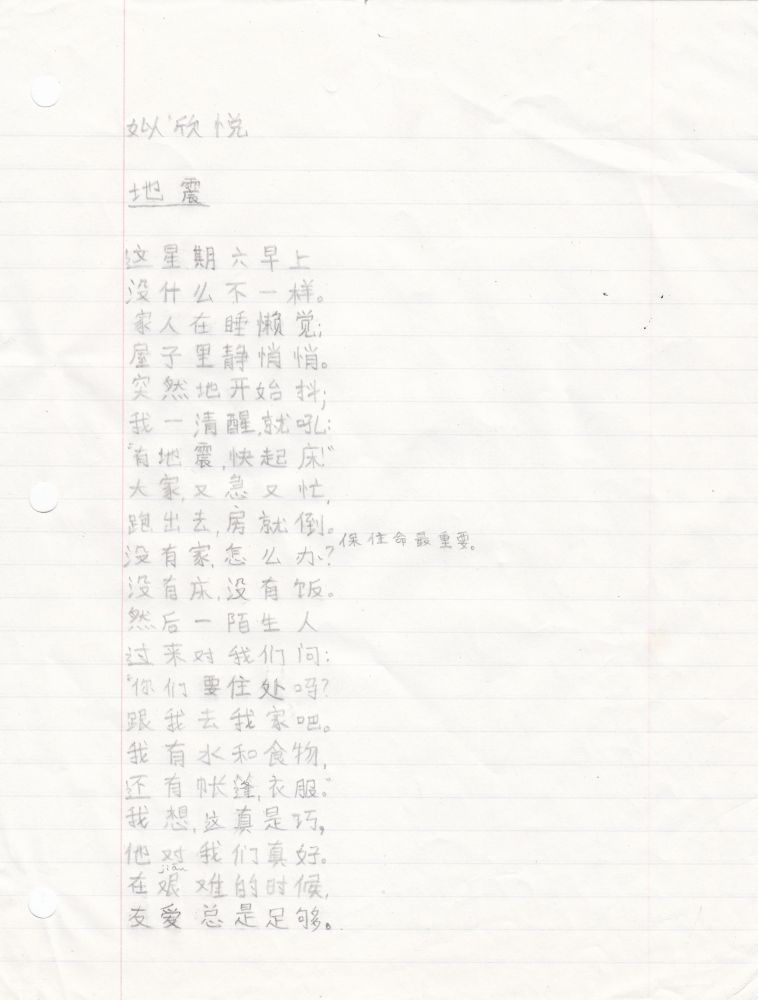 姒欣悦
地震
这星期六早上
没什么不一样。
家人在睡懒觉;
屋子里静悄悄。
突然地开始抖;
我一清醒,就吼:
“有地震,快起床!”
大家,又急又忙,
跑出去,房就倒。
保住命最重要。
没有家,怎么办?
没有床,没有饭。
然后一陌生人
过来对我们问:
“你们要住处吗?
跟我去我家吧。
我有水和食物,
还有帐篷,衣服。”
我想,这真是巧,
他对我们真好。
jiān
在艰难的时候,
友爱总是足够。